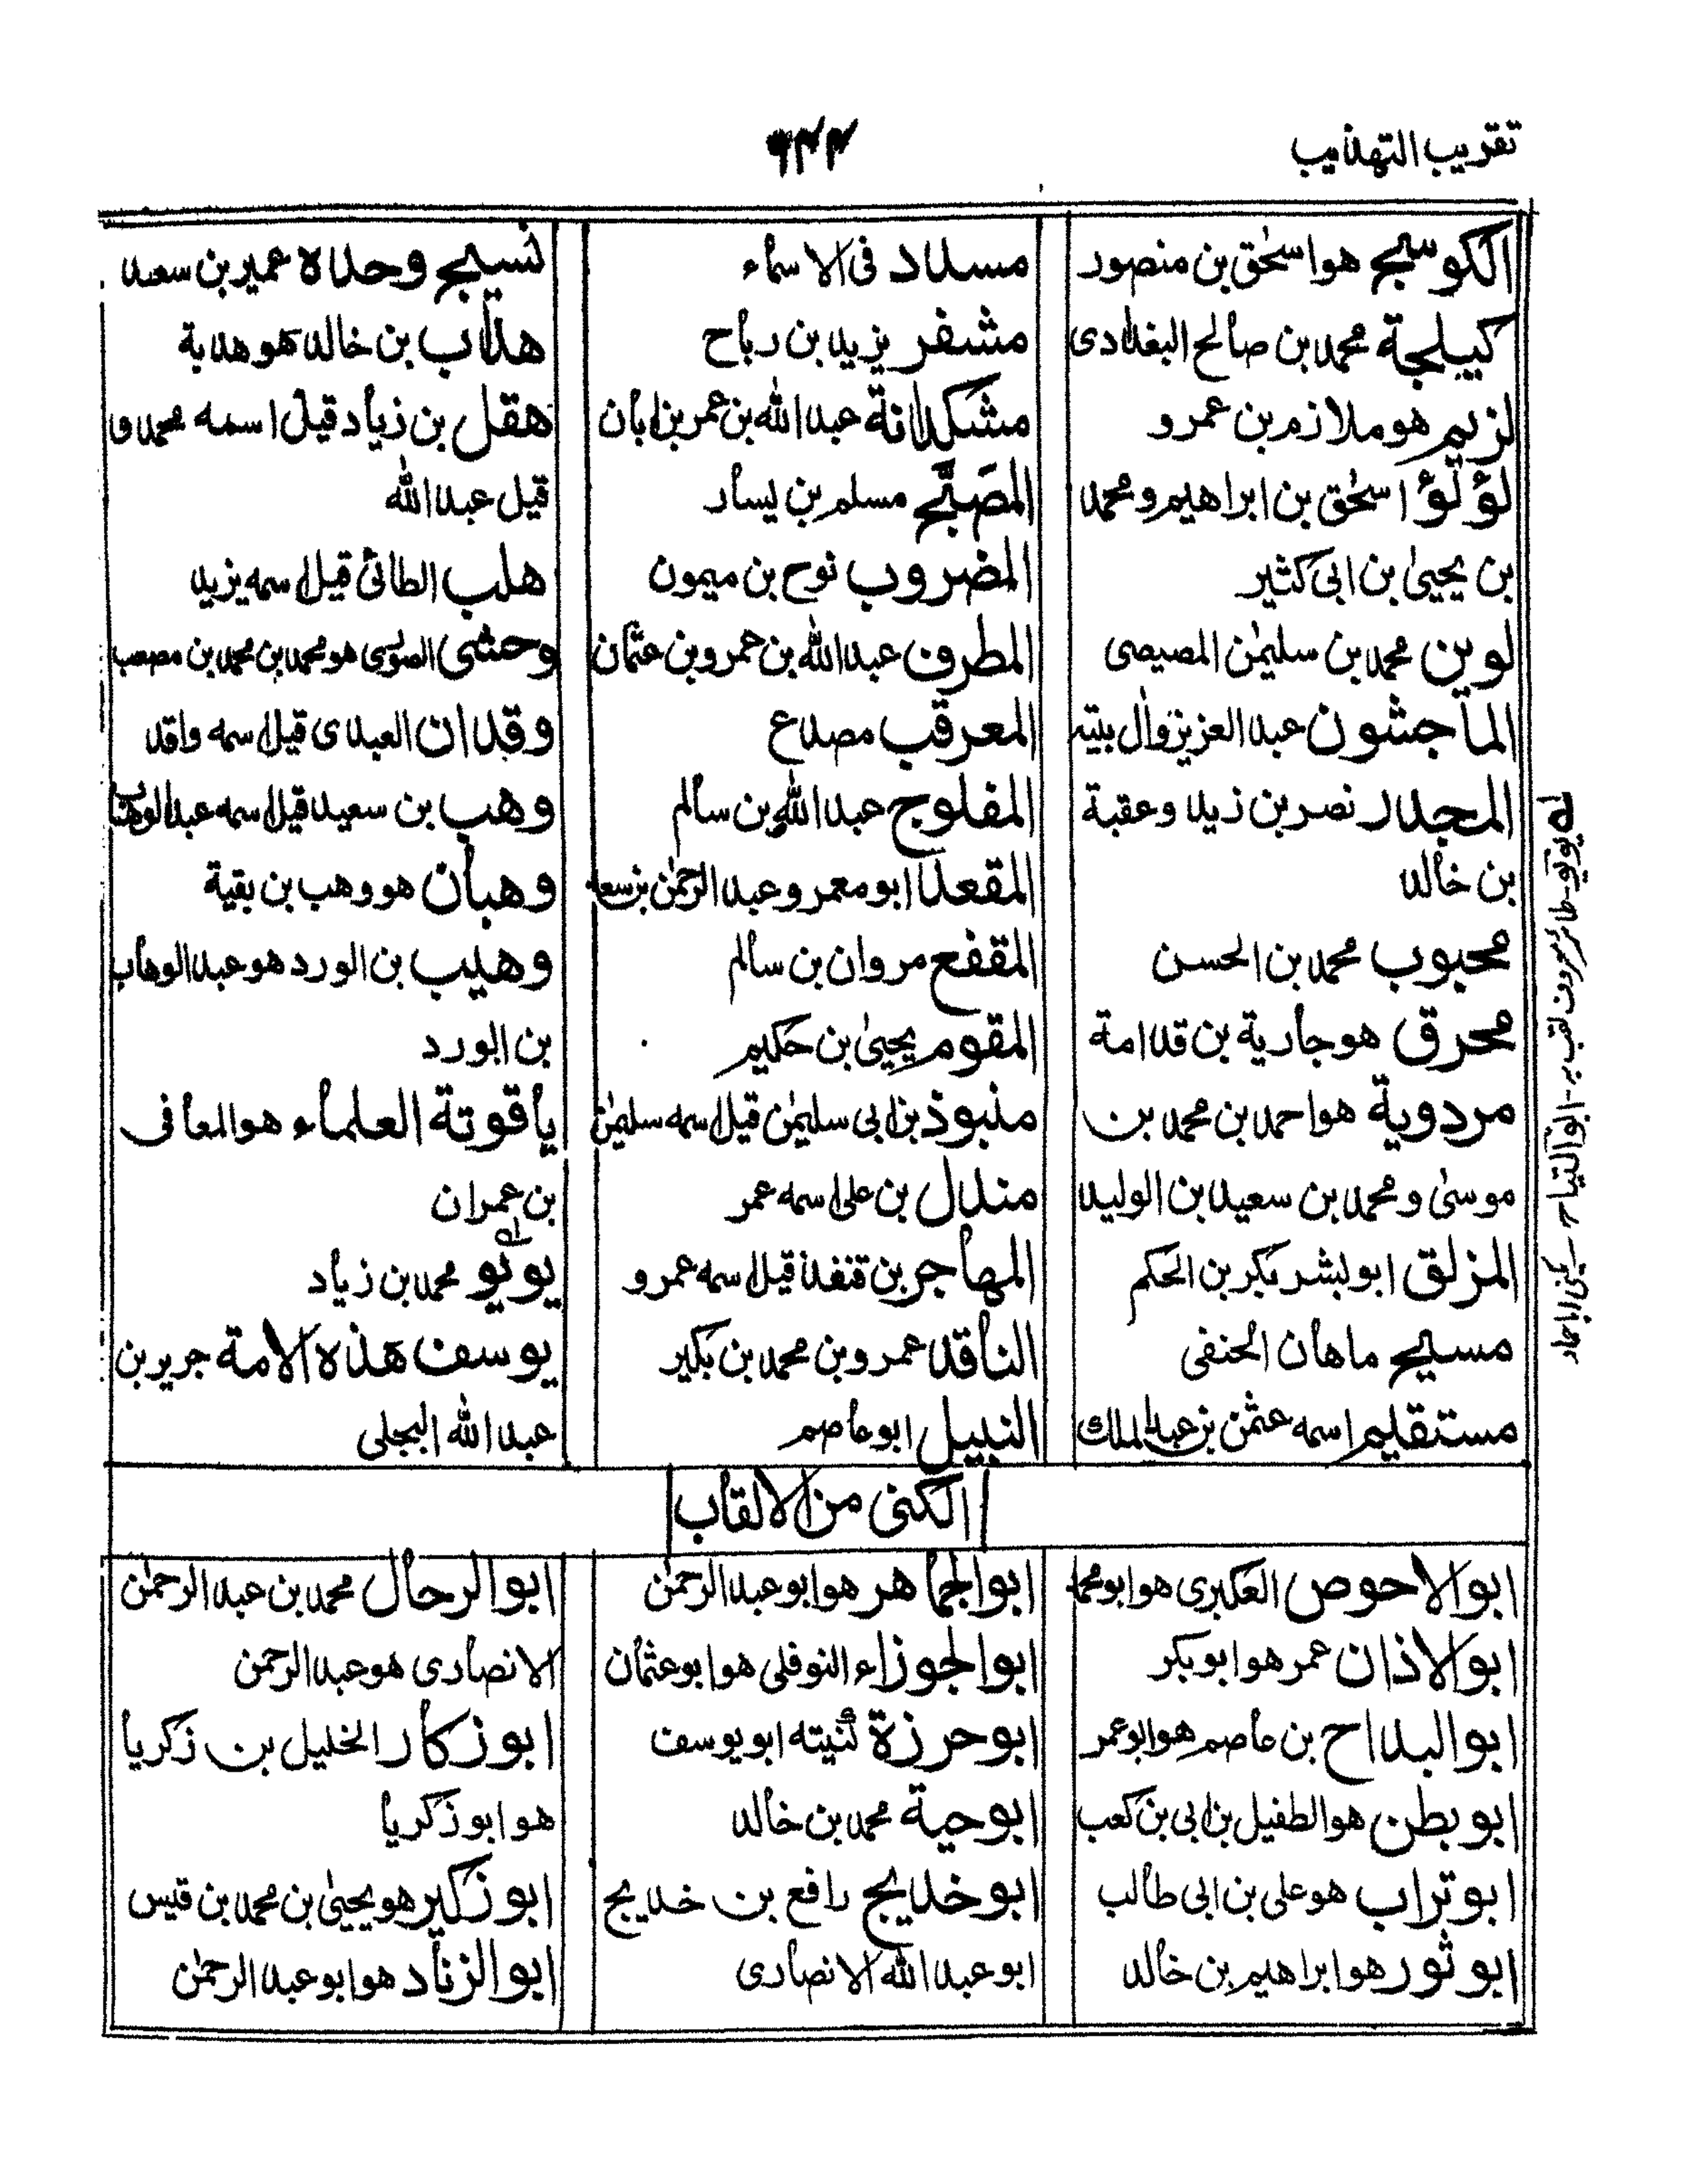 تقريب التهذيب
الكوسج هو اسحٰق بن منصور
كيلجة محمد بن صالح البغدادى
لزيم هو ملازم بن عمرو
لؤلؤ اسحٰق بن ابراهيم و محمد
بن يحيىٰ بن ابى كثير
لوين محمد بن سليمٰن المصيصى
الماجشون عبد العزيز وال بيته
المجدر نصر بن زيد وعقبة
بن خالد
محبوب محمد بن الحسن
محرق هو جارية بن قدامة
مردوية هو احمد بن محمد بن
موسىٰ و محمد بن سعيد بن الوليد
المزلق ابو بشر بكر بن الحكم
مسيح ماهان الحنفى
مستقليم اسمه عثمٰن بن عبد الملك
مسدد فى الاسماء
مشفر يزيد بن رباح
مشكدانة عبد الله بن عمر بن ابان
المصَبَّح مسلم بن يسار
المضروب نوح بن ميمون
المطرف عبد الله بن عمرو بن عثمان
المعرقب مصدع
المفلوج عبد الله بن سالم
المقعد ابو معمر و عبد الرحمٰن بن سعد
المقفع مروان بن سالم
المقوم يحيىٰ بن حكيم
منبوذ بن ابى سليمٰن قيل اسمه سليمٰن
مندل بن على اسمه عمر
المهاجر بن قنفذ قيل اسمه عمرو
الناقد عمرو بن محمد بن بكير
النبيل ابو عاصم
نسيج وحده عمير بن سعد
هداب بن خالد هو هدبة
هقل بن زياد قيل اسمه محمد و
قيل عبد الله
هلب الطائى قيل اسمه يزيد
وحشى الصورى هو محمد بن محمد بن مصعب
وقدان العبدى قيل اسمه واقد
وهب بن سعيد قيل اسمه عبد الوهاب
وهبان هو وهب بن بقية
وهيب بن الورد هو عبد الوهاب
بن الورد
ياقوتة العلماء هو المعافى
بن عمران
يويو محمد بن زياد
يوسف هذه الامة جرير بن
عبد الله البجلى
الكنى من الالقاب
ابو الاحوص العكبرى هو ابو محمد
ابو الاذان عمر هو ابو بكر
ابو البداح بن عاصم هو ابو عمر
ابو بطن هو الطفيل بن ابى بن كعب
ابو تراب هو على بن ابى طالب
ابو ثور هو ابراهيم بن خالد
ابو الجماهر هو ابو عبد الرحمٰن
ابو الجوزاء النوفلى هو ابو عثمان
ابو حرزة كنيته ابو يوسف
ابو حية محمد بن خالد
ابو خديج رافع بن خديج
ابو عبد الله الانصارى
ابو الرحال محمد بن عبد الرحمٰن
الانصارى هو عبد الرحمن
ابو زكار الخليل بن زكريا
هو ابو زكريا
ابو زكير هو يحيىٰ بن محمد بن قيس
ابو الزناد هو ابو عبد الرحمٰن
يويو - طائر معروف لقب به -